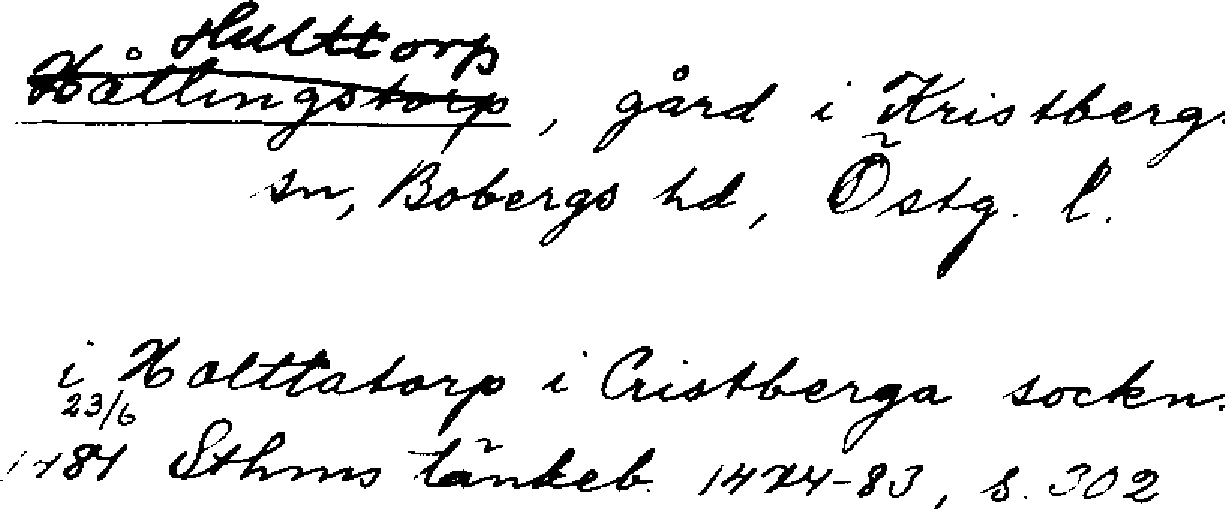 Hulttorp
Hållingstorp, gård i Kristbergs
sn, Bobergs hd, Östg. l.
i Holttatorp i Cristberga sockn
23/6
1481 Sthms tänkeb. 1474-83, s. 302